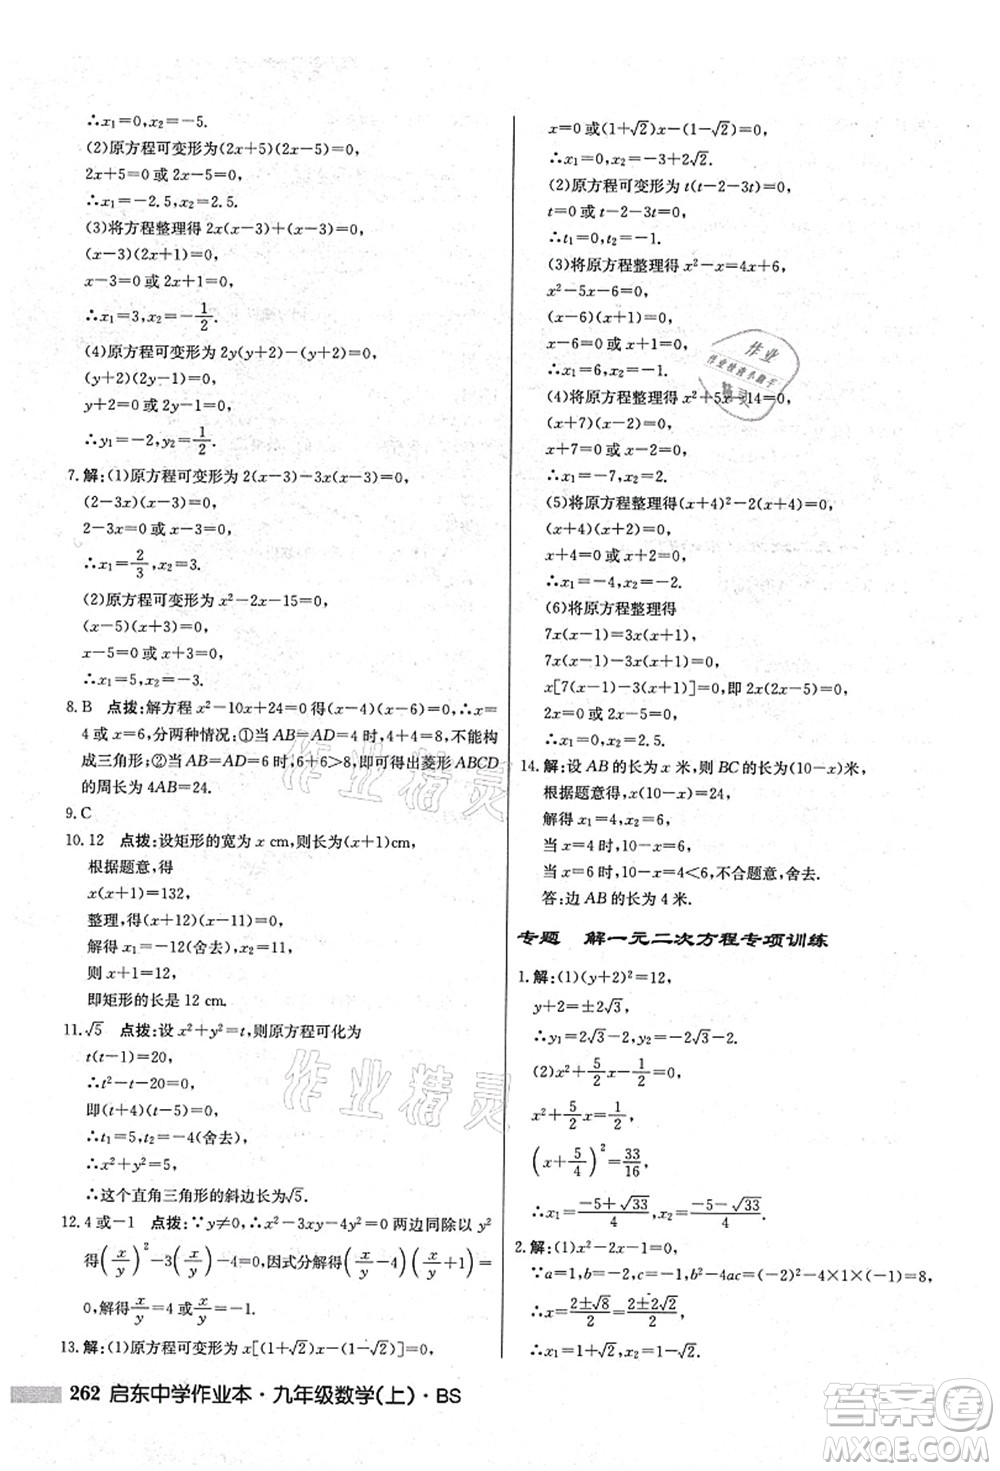 ∴x₁=0,x₂=-5.
(2)原方程可变形为(2x+5)(2x-5)=0,
2x+5=0 或 2x-5=0,
∴x₁=-2.5,x₂=2.5.
(3)将方程整理得 2x(x-3)+(x-3)=0,
(x-3)(2x+1)=0,
x-3=0 或 2x+1=0,
∴x₁=3,x₂=-1/2.
(4)原方程可变形为 2y(y+2)-(y+2)=0,
(y+2)(2y-1)=0,
y+2=0 或 2y-1=0,
∴y₁=-2,y₂=1/2.
7.解:(1)原方程可变形为 2(x-3)-3x(x-3)=0,
(2-3x)(x-3)=0,
2-3x=0 或 x-3=0,
∴x₁=2/3,x₂=3.
(2)原方程可变形为 x²-2x-15=0,
(x-5)(x+3)=0,
x-5=0 或 x+3=0,
∴x₁=5,x₂=-3.
8.B 点拨:解方程 x²-10x+24=0 得(x-4)(x-6)=0,∴x=
4 或 x=6,分两种情况:①当 AB=AD=4 时,4+4=8,不能构
成三角形;②当 AB=AD=6 时,6+6>8,即可得出菱形 ABCD
的周长为 4AB=24.
9.C
10.12 点拨:设矩形的宽为 x cm,则长为(x+1)cm,
根据题意,得
x(x+1)=132,
整理,得(x+12)(x-11)=0,
解得 x₁=-12(舍去),x₂=11,
则 x+1=12,
即矩形的长是 12 cm.
11.√5 点拨:设 x²+y²=t,则原方程可化为
t(t-1)=20,
∴t²-t-20=0,
即(t+4)(t-5)=0,
∴t₁=5,t₂=-4(舍去),
∴x²+y²=5,
∴这个直角三角形的斜边长为√5.
12.4 或-1 点拨:∵y≠0,∴x²-3xy-4y²=0 两边同除以 y²
得(x/y)²-3(x/y)-4=0,因式分解得(x/y-4)(x/y+1)=
0,解得x/y=4 或x/y=-1.
13.解:(1)原方程可变形为 x[(1+√2)x-(1-√2)]=0,
262 启东中学作业本·九年级数学(上)·BS
x=0 或(1+√2)x-(1-√2)=0,
∴x₁=0,x₂=-3+2√2.
(2)原方程可变形为 t(t-2-3t)=0,
t=0 或 t-2-3t=0,
∴t₁=0,t₂=-1.
(3)将原方程整理得 x²-x=4x+6,
x²-5x-6=0,
(x-6)(x+1)=0,
x-6=0 或 x+1=0,
∴x₁=6,x₂=-1.
(4)将原方程整理得 x²+5x-14=0,
(x+7)(x-2)=0,
x+7=0 或 x-2=0,
∴x₁=-7,x₂=2.
(5)将原方程整理得(x+4)²-2(x+4)=0,
(x+4)(x+4-2)=0,
x+4=0 或 x+2=0,
∴x₁=-4,x₂=-2.
(6)将原方程整理得
7x(x-1)=3x(x+1),
7x(x-1)-3x(x+1)=0,
x[7(x-1)-3(x+1)]=0,即 2x(2x-5)=0,
2x=0 或 2x-5=0,
∴x₁=0,x₂=2.5.
14.解:设 AB 的长为 x 米,则 BC 的长为(10-x)米,
根据题意,得 x(10-x)=24,
解得 x₁=4,x₂=6,
当 x=4 时,10-x=6,
当 x=6 时,10-x=4<6,不合题意,舍去.
答:边 AB 的长为 4 米.
专题 解一元二次方程专项训练
1.解:(1)(y+2)²=12,
y+2=±2√3,
∴y₁=2√3-2,y₂=-2√3-2.
(2)x²+5/2x-1/2=0,
x²+5/2x=1/2,
(x+5/4)²=33/16,
∴x₁=(-5+√33)/4,x₂=(-5-√33)/4.
2.解:(1)x²-2x-1=0,
∵a=1,b=-2,c=-1,b²-4ac=(-2)²-4×1×(-1)=8,
∴x=(2±√8)/2=(2±2√2)/2,
作业
作业检查小助手
精灵
作业精灵
作业精灵
答案圈
MXQE.COM